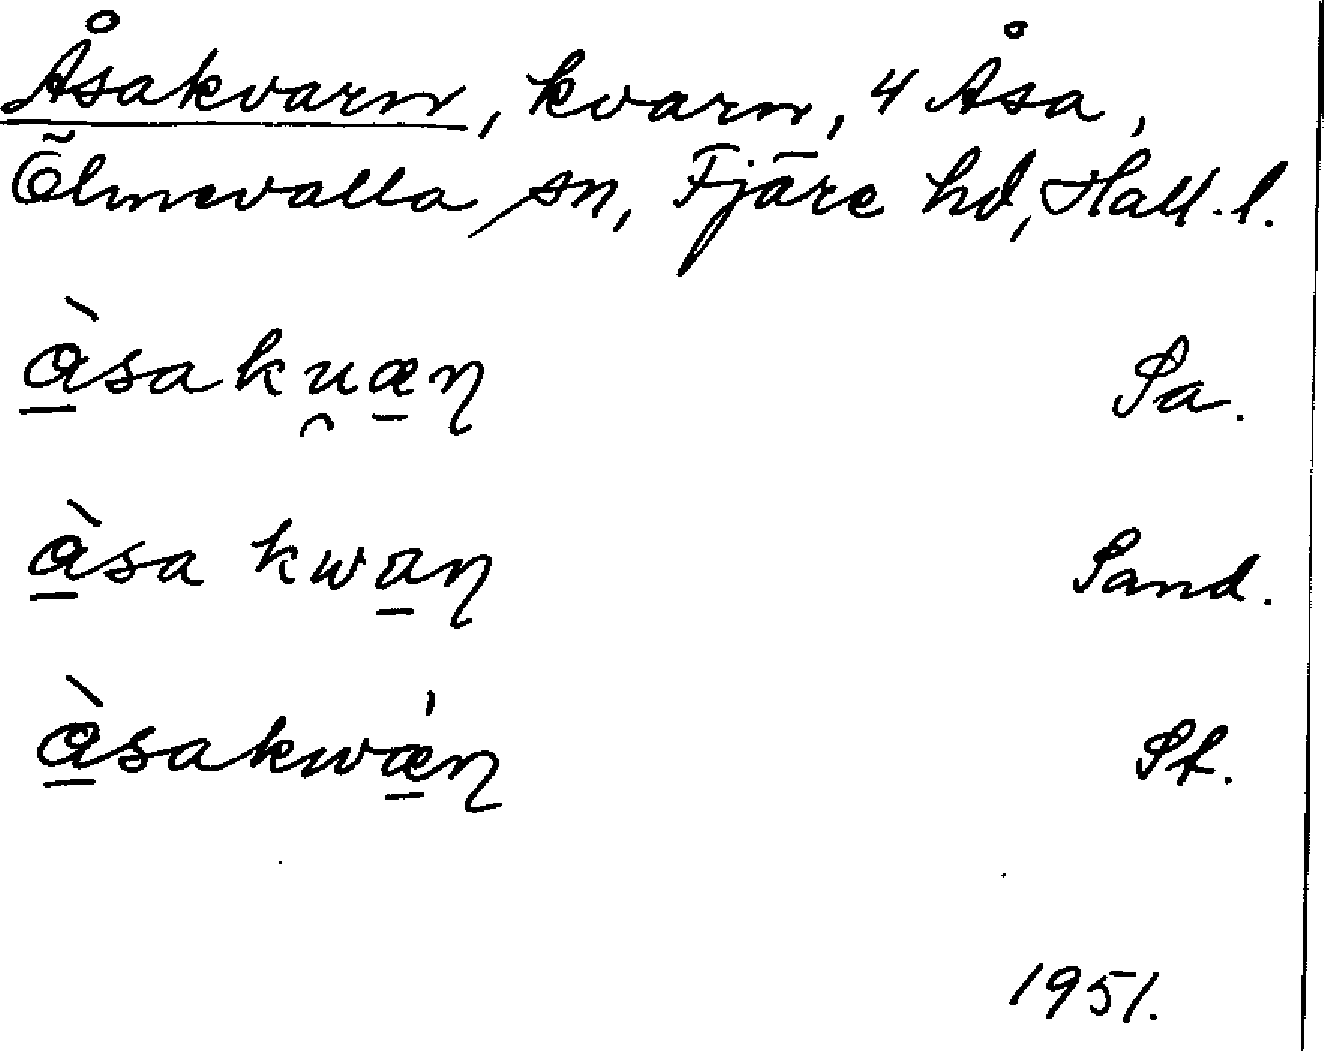 Åsakvarn, kvarn, 4 Åsa,
Ölmevalla sn, Fjäre hd, Hall. l.
å̱̀saku̯æ̱ɳ Sa.
å̱̀sa kwa̱ɳ Sand.
å̱̀sakwǽ̱ɳ St.
1951.